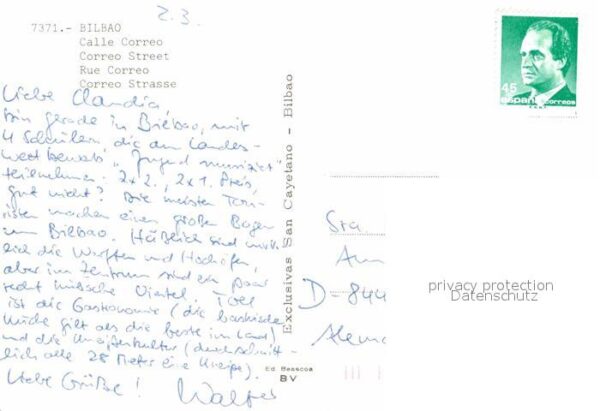 2.3.
7371.- BILBAO
Calle Correo
Correo Street
Rue Correo
Correo Strasse
Liebe Claudia,
bin gerade in Bilbao, mit
4 Schülern, die am Landes-
wettbewerb "Jugend musiziert"
teilnehmen. 2x2., 2x1. Preis,
gut nicht? Die meisten Tou-
risten machen einen großen Bogen
um Bilbao. Häßlich sind
sich die Werften und Hochöfen,
aber im Zentrum sind ein paar
recht hübsche Viertel. Toll
ist die Gastronomie (die baskische
Küche gilt als die beste im Land)
und die Kneipenkultur (durchschnitt-
lich alle 28 Meter eine Kneipe).
Liebe Grüße!
Walter
Exclusivas San Cayetano - Bilbao
Ed. Beascoa
BV
45
españa correos
Sra.
D-844
Alema
privacy protection
Datenschutz